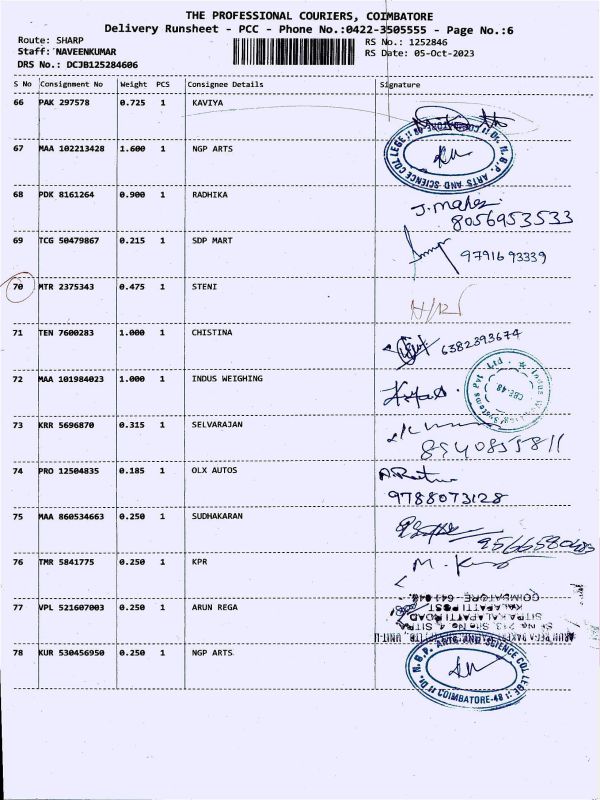 THE PROFESSIONAL COURIERS, COIMBATORE
Delivery Runsheet - PCC - Phone No.:0422-3505555 - Page No.:6
Route: SHARP RS No.: 1252846
Staff: NAVEENKUMAR RS Date: 05-Oct-2023
DRS No.: DCJB125284606
S No Consignment No Weight PCS Consignee Details Signature
66 PAK 297578 0.725 1 KAVIYA
67 MAA 102213428 1.600 1 NGP ARTS
Dr. N.G.P. ARTS AND SCIENCE COLLEGE
68 PDK 8161264 0.900 1 RADHIKA
8056953533
69 TCG 50479867 0.215 1 SDP MART 9791693339
70 MTR 2375343 0.475 1 STENI
71 TEN 7600283 1.000 1 CHISTINA 6382393674
72 MAA 101984023 1.000 1 INDUS WEIGHING
CBE-48
73 KRR 5696870 0.315 1 SELVARAJAN
74 PRO 12504835 0.185 1 OLX AUTOS
9788073128
75 MAA 860534663 0.250 1 SUDHAKARAN
76 TMR 5841775 0.250 1 KPR
COIMBATORE
77 VPL 521607003 0.250 1 ARUN REGA
KALAPATTI POST
78 KUR 530456950 0.250 1 NGP ARTS
Dr. N.G.P. ARTS AND SCIENCE COLLEGE
COIMBATORE-48